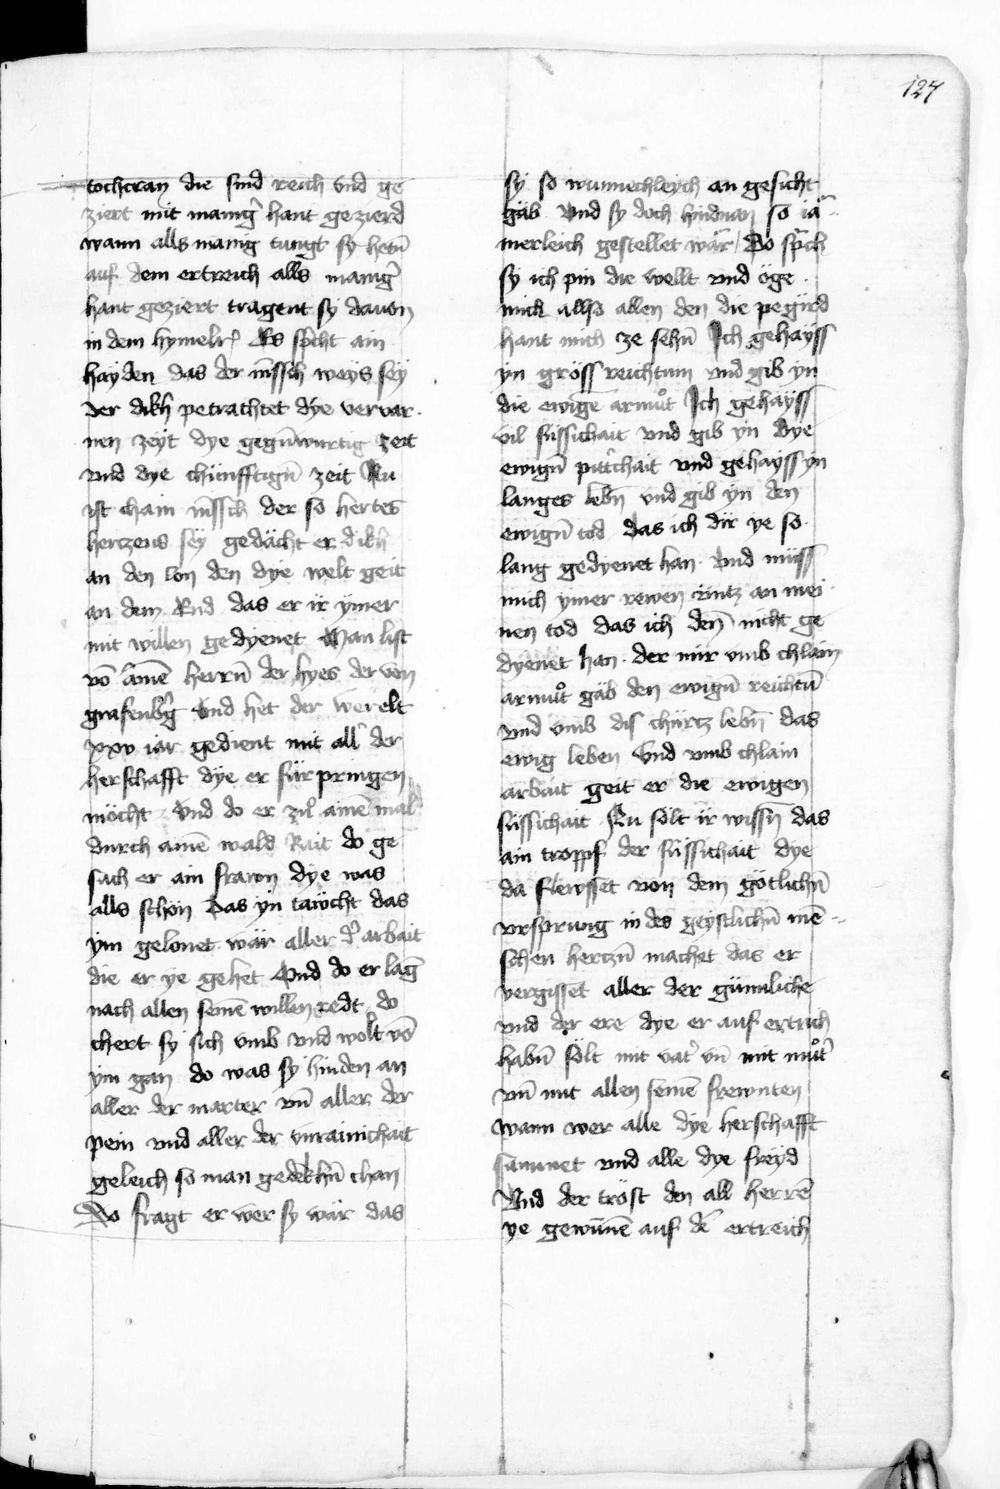 127
tochtran die sind reich vnd ge
ziert mit manig̉ hant gezierd
wann alls manig tungt sy hetn̄
auf dem ertreich alls manig̉
hant geziert tragent sy dauon
in dem hymelr̉ Es spͥcht ain
hayden das der mē̄sch weys sey
der dikh petrachtet dye veruar
nen zeyt dye gegn̄wurtig zeit
vnd dye chünfftign̄ zeit Nu
ist chain mē̄sch der so hertes
hertzens sey gedächt er dikh
an den lon den dye welt geit
an dem End das er ir ymer
mit willen gedyenet Man list
vō ainē herrn̄ der hyes der von
grafenbg̉ vnd het der werelt
xxv iar gedient mit all̉ der
herschafft dye er für pringen
möcht Vnd do er zů ainē mal
durch ainē wald Rait do ge
sach er ain frawn dye was
alls schön das yn tawcht das
ym gelonet wär aller d̉ arbait
die er ye gehet Vnd do er laḡ
nach allen seinē willen redt do
chert sy sich vmb vnd wolt vō
ym gan do was sy hinden an
aller der marter vn̄ aller der
pein vnd aller der vnrainichait
geleich so man gedekhn̄ chan
Do fragt er wer sy wär das
sy so wunnechleych an gesicht
gäb Vnd sy doch hindnan so iä
merleich gestellet wär Do spͣch
sy ich pin die wellt vnd öge
mich allso allen den die pegird
hant mich ze sehn̄ Ich gehayss
yn gröss reichtum vnd gib yn
die ewige armůt Ich gehayss
vil süssichait vnd gib yn dye
ewign̄ pittr̉chait vnd gehayss yn
langes lebn̄ vnd gib yn den
ewign̄ tod das ich dir ye so
lang gedyenet han Vnd müss
mich ymer rewen vntz an mei
nen tod das ich den̄ nicht ge
dyenet han der mir vmb chlain
armůt gäb den ewign̄ reichtū
vnd vmb dis chürtz lebn̄ das
ewig leben Vnd vmb chlain
arbait geit er die ewigen
süssichait Nu sölt ir wissn̄ das
ain troppf der süssichait dye
da flewsset von dem götlichn̄
vrsprung in des geystlichn̄ mē
schen hertzn̄ machet das er
vergisset aller der günnliche
vnd der ere dye er auf ertrich
habn̄ sölt mit vat̉ vn̄ mit můt̉
vn̄ mit allen seinē frewnten
wann wer alle dye herschafft
samnet vnd alle dye freyd
Vnd der tröst den all herrē
ye gewünē auf dē ertreich